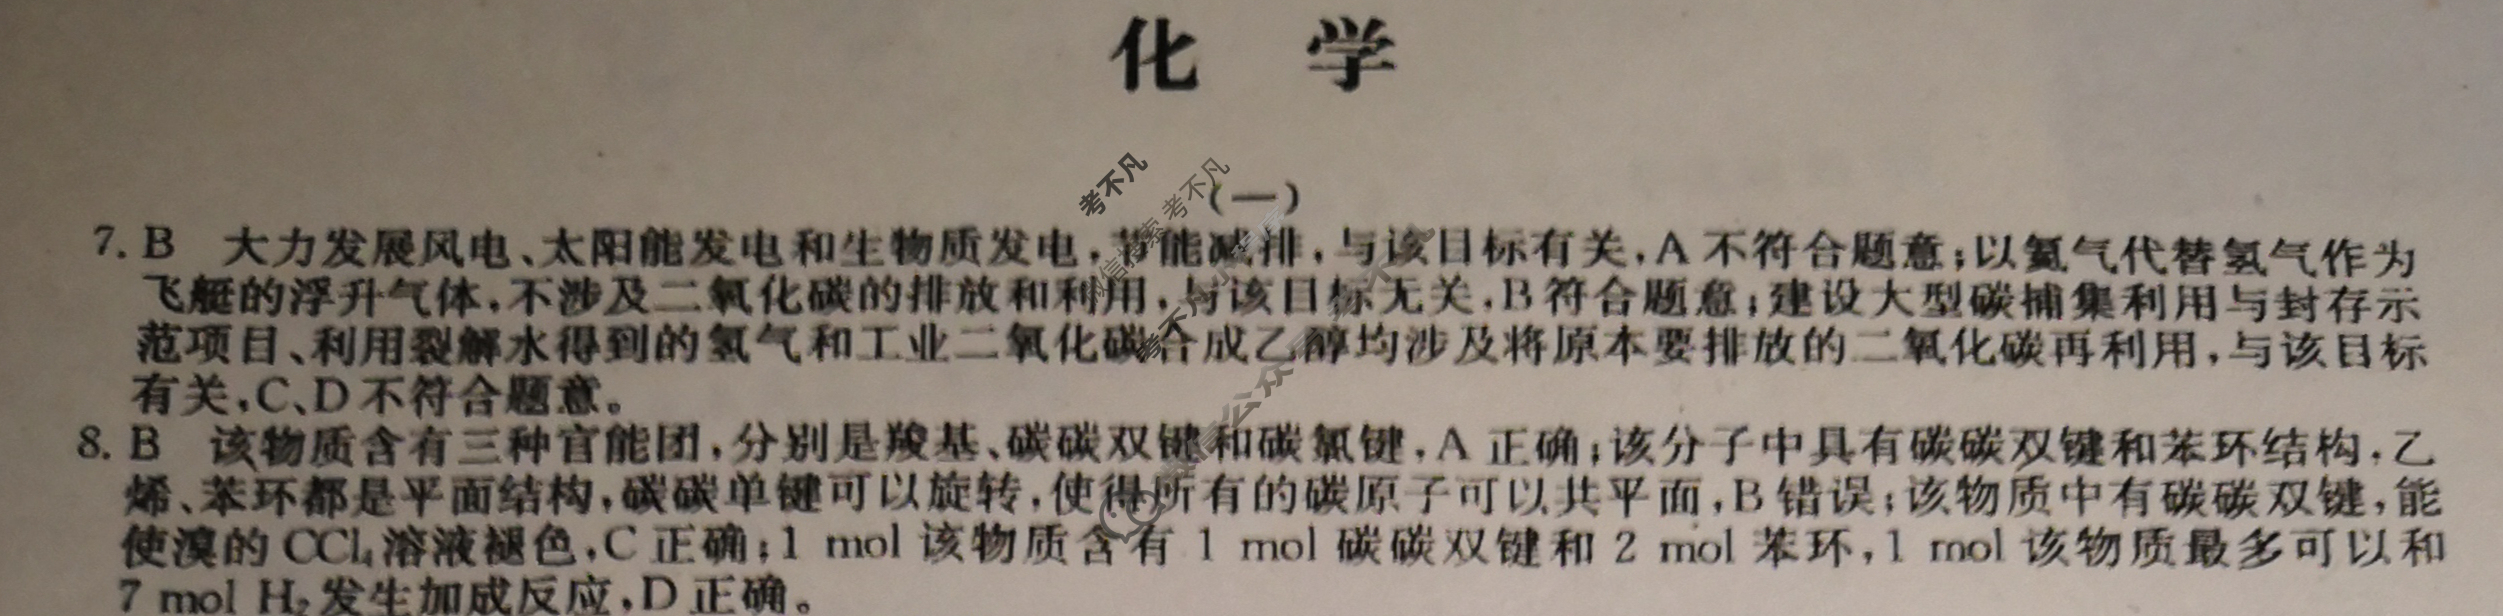 化 学
(一)
7. B 大力发展风电、太阳能发电和生物质发电,节能减排,与该目标有关,A 不符合题意;以氦气代替氢气作为
飞艇的浮升气体,不涉及二氧化碳的排放和利用,与该目标无关,B符合题意;建设大型碳捕集利用与封存示
范项目、利用裂解水得到的氢气和工业二氧化碳合成乙醇均涉及将原本要排放的二氧化碳再利用,与该目标
有关,C、D 不符合题意。
8. B 该物质含有三种官能团,分别是羧基、碳碳双键和碳氯键,A 正确;该分子中具有碳碳双键和苯环结构,乙
烯、苯环都是平面结构,碳碳单键可以旋转,使得所有的碳原子可以共平面,B 错误;该物质中有碳碳双键,能
使溴的 CCl₄溶液褪色,C 正确;1 mol 该物质含有 1 mol 碳碳双键和 2 mol 苯环,1 mol 该物质最多可以和
7 mol H₂发生加成反应,D 正确。
考不凡
微信搜索考不凡